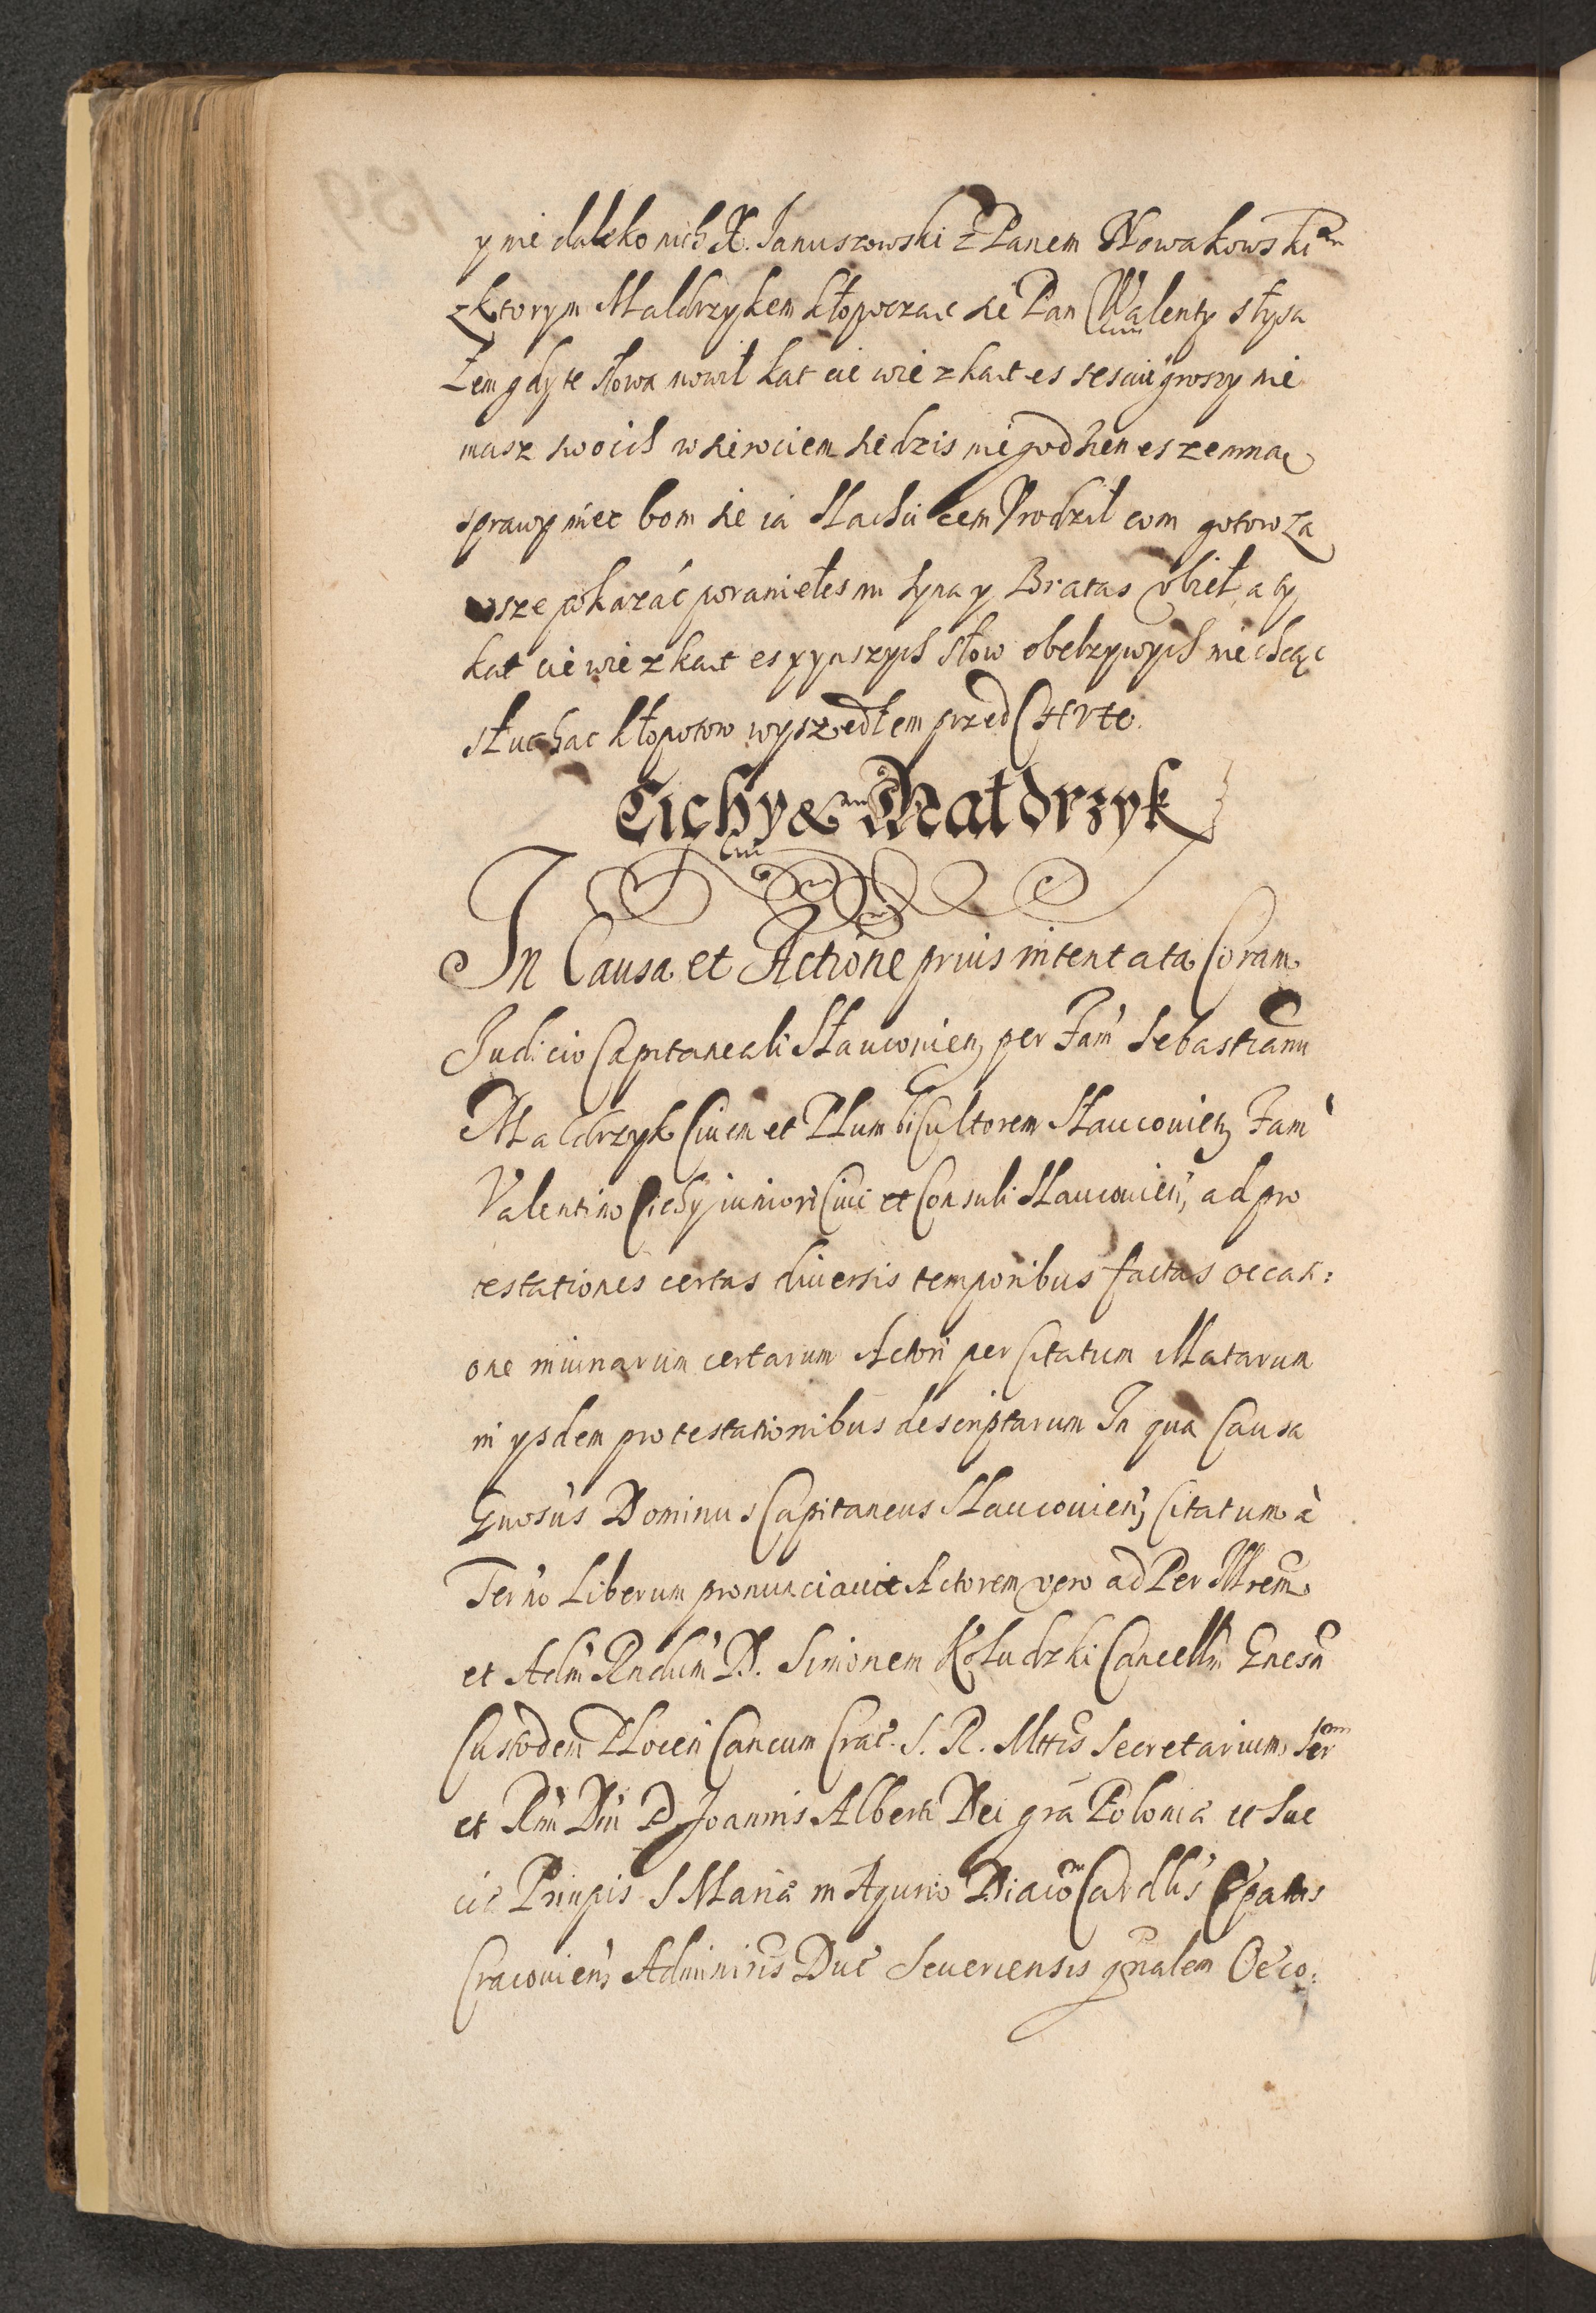 y nie daleko nich X. Januszowski z Panem Nowakowskiem
z ktorym Maldrzykem kłopocząc sie Pan Walenty słysza
Łem gdy te słowa mowił kat cie wie zkąt es sescių groszy nie
masz swoich w sieroctem siedzis nie godzien es zemną
sprawy miec bom sie ia Slachcicem Vrodził com gotow Za
wsze pokazać poraniełes mi syna y Bratas vbieł, a ty
kat cie wie zkąt es y ynszych słow obelzywych nie chcąc
słuchac kłopotow wyszedłem przed Czerte.
Cichy & Małdrzyk
In Causa et Actione prius intentata Coram
Judicio Capitaneali Slauconien, per Fam Sebastianu
Maldrzyk Ciuem et Plumbi Cultorem Slauconien, Fam
Valentino Cichy iuniori Ciui et Consuli Slauconien, ad pro
testationes certas diuersis temporibus factas occasi:
one iniuriarum certarum Actori per Citatum Illatarum
in ysdem protestationibus descriptarum In qua Causa
Gnosus Dominus Capitaneus Slauconien, Citatum à
Terno Liberum pronunciauit Actorem vero ad Per Illrem
et Adm Rndum D. Simonem Kołudzki Cancellm Gnesn
Custodem Plocen Cancum Crac. S. R. Mttis Secretarium, Ser
et Rmi Dni D. Joannis Alberti Dei gra Polonia et Sue
cie Prinpis S Maria in Aquiro Diaco Cardlis Epatus
Cracouiens Adminiris Duc Seueriensis gnalem Oeco: